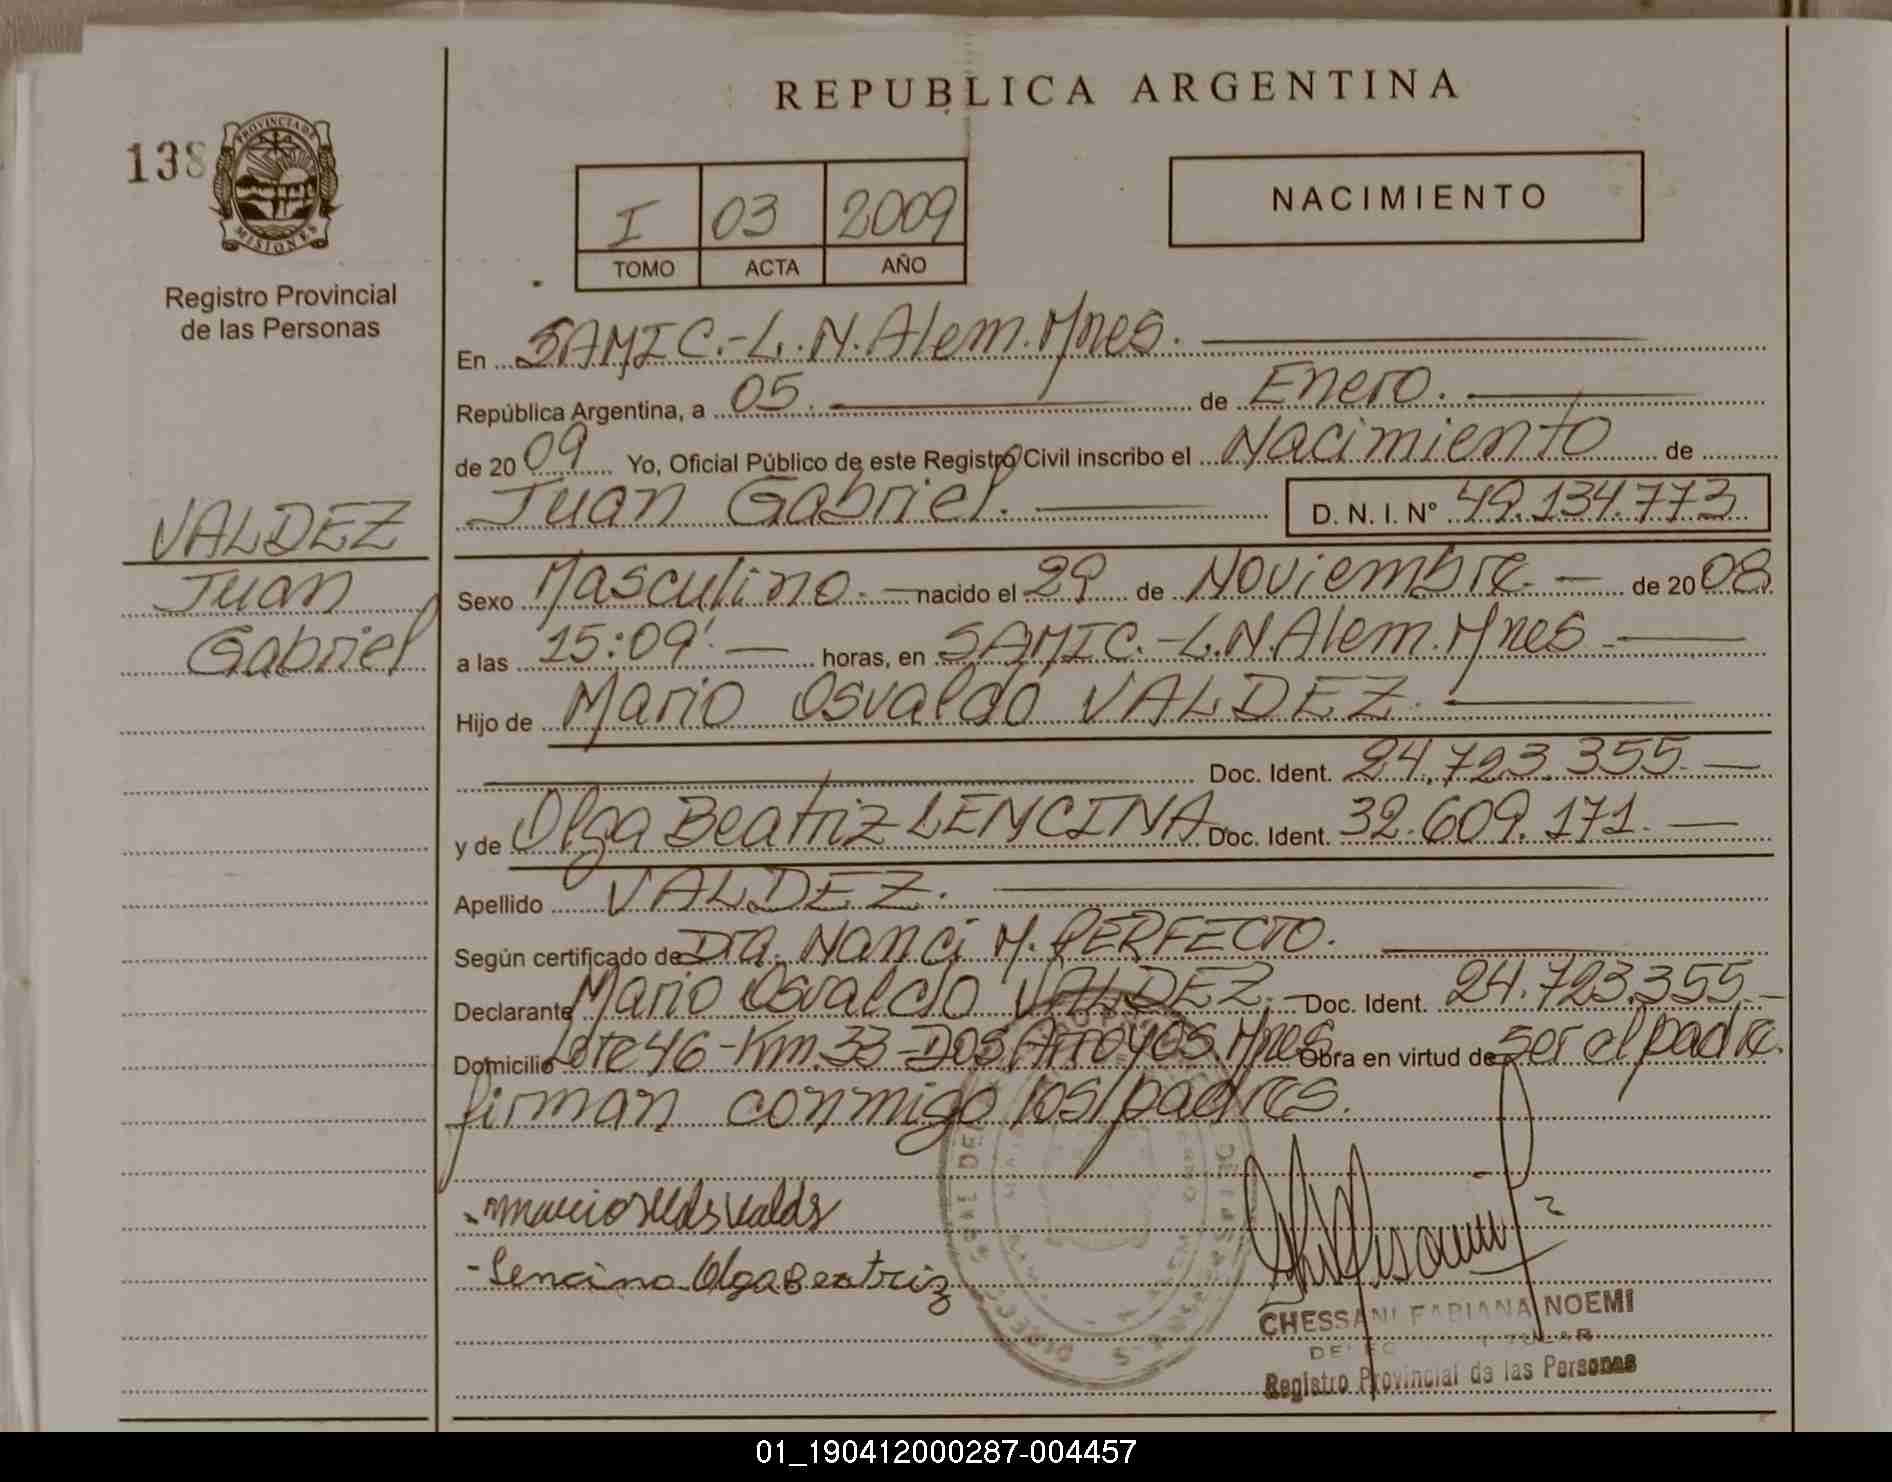 REPUBLICA ARGENTINA
138
PROVINCIA DE
MISIONES
Registro Provincial
de las Personas
I 03 2009
TOMO ACTA AÑO
NACIMIENTO
En SAMIC.-L.N.Alem.Mnes.
República Argentina, a 05. de Enero.
de 2009 Yo, Oficial Público de este Registro Civil inscribo el Nacimiento de
Juan Gabriel. D. N. I. N° 49.134.773
VALDEZ
Juan
Gabriel
Sexo Masculino. nacido el 29 de Noviembre. de 2008.
a las 15:09'. horas, en SAMIC.-L.N.Alem.Mnes
Hijo de Mario Osvaldo VALDEZ.
Doc. Ident. 24.723.355.
y de Olga Beatriz LENCINA Doc. Ident. 32.609.171.
Apellido VALDEZ.
Según certificado de Dra. Nanci M. PERFECTO.
Declarante Mario Osvaldo VALDEZ. Doc. Ident. 24.723.355
Domicilio Lote 46-Km.33-Dos Arroyos.Mnes Obra en virtud de ser el padre.
firman conmigo los padres.
- Lencina Olga Beatriz
CHESSANI FABIANA NOEMI
Registro Provincial de las Personas
01_190412000287-004457